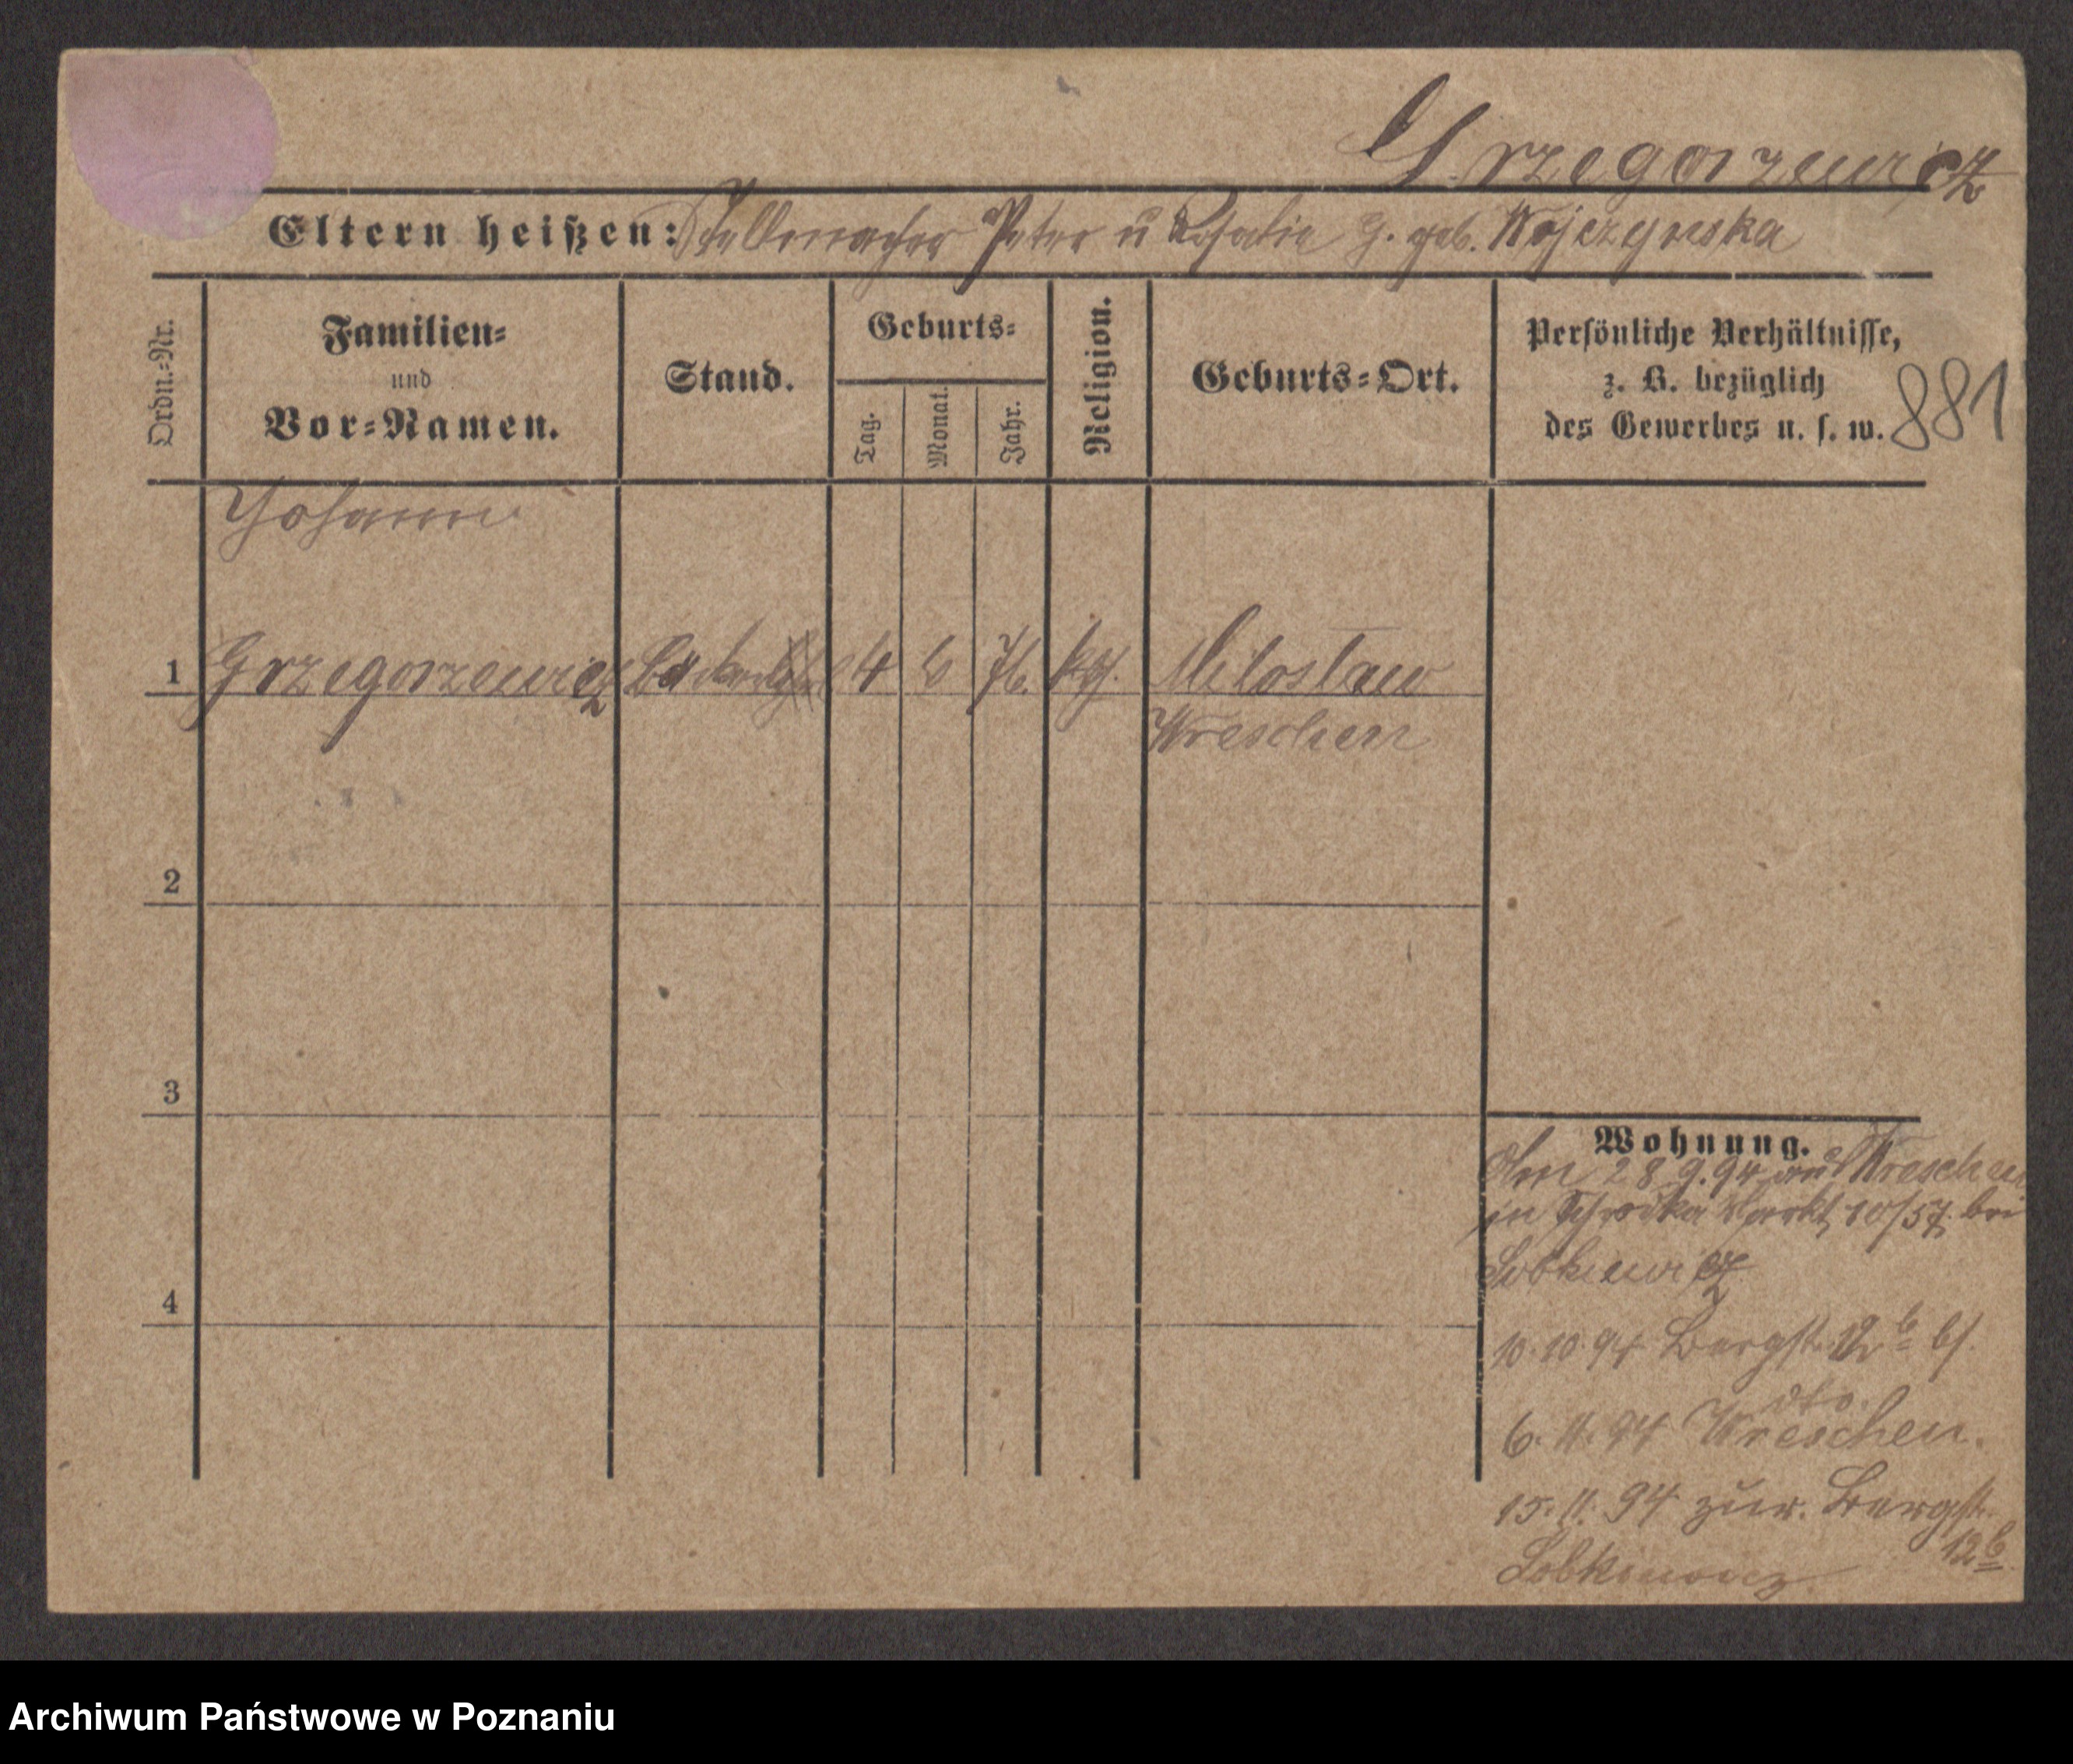 Grzegorzewicz
Eltern heißen: Stellmacher Peter u Rosalie g. geb. Wojczynska
Ordn.-Nr.
Familien-
und
Vor-Namen.
Stand.
Geburts-
Tag.
Monat.
Jahr.
Religion.
Geburts-Ort.
Persönliche Verhältnisse,
z. B. bezüglich
des Gewerbes u. s. w.
881
Johann
1 Grzegorzewicz 4 6 76. kth. Miloslaw
Wreschen
2
3
4
Wohnung.
Am 28 9.94 aus Wreschen
in Schrodka Markt 10/57. bei
Lobkiewicz
10.10.94 Bergst. 12 b bei
dto.
6.11.94 Wreschen.
15.11.94 zur. Bergst.
12 b
Lobkiewicz
Archiwum Państwowe w Poznaniu